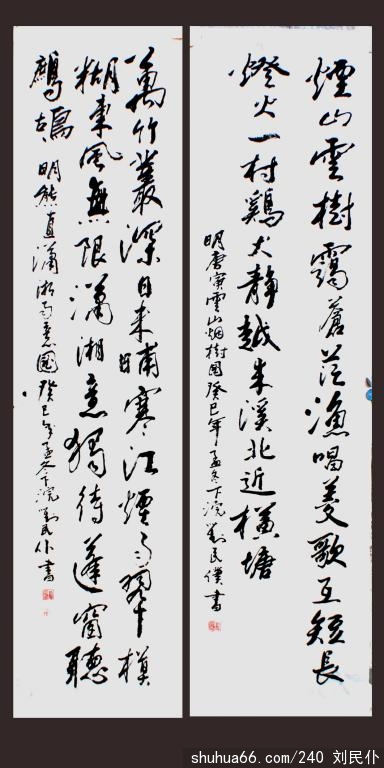 煙山雲樹靄蒼茫漁唱菱歌互短長
燈火一村鷄犬静越来溪北近横塘
明唐寅雲山烟樹图癸巳年孟冬下浣劉民僕書
萬竹叢深日未晡寒江煙雨翠模
糊東風無限瀟湘意獨待蓬窗聽
鷓鴣 明熊直瀟湘雨意图癸巳年孟冬下浣劉民仆書
shuhua66.com/240 刘民仆